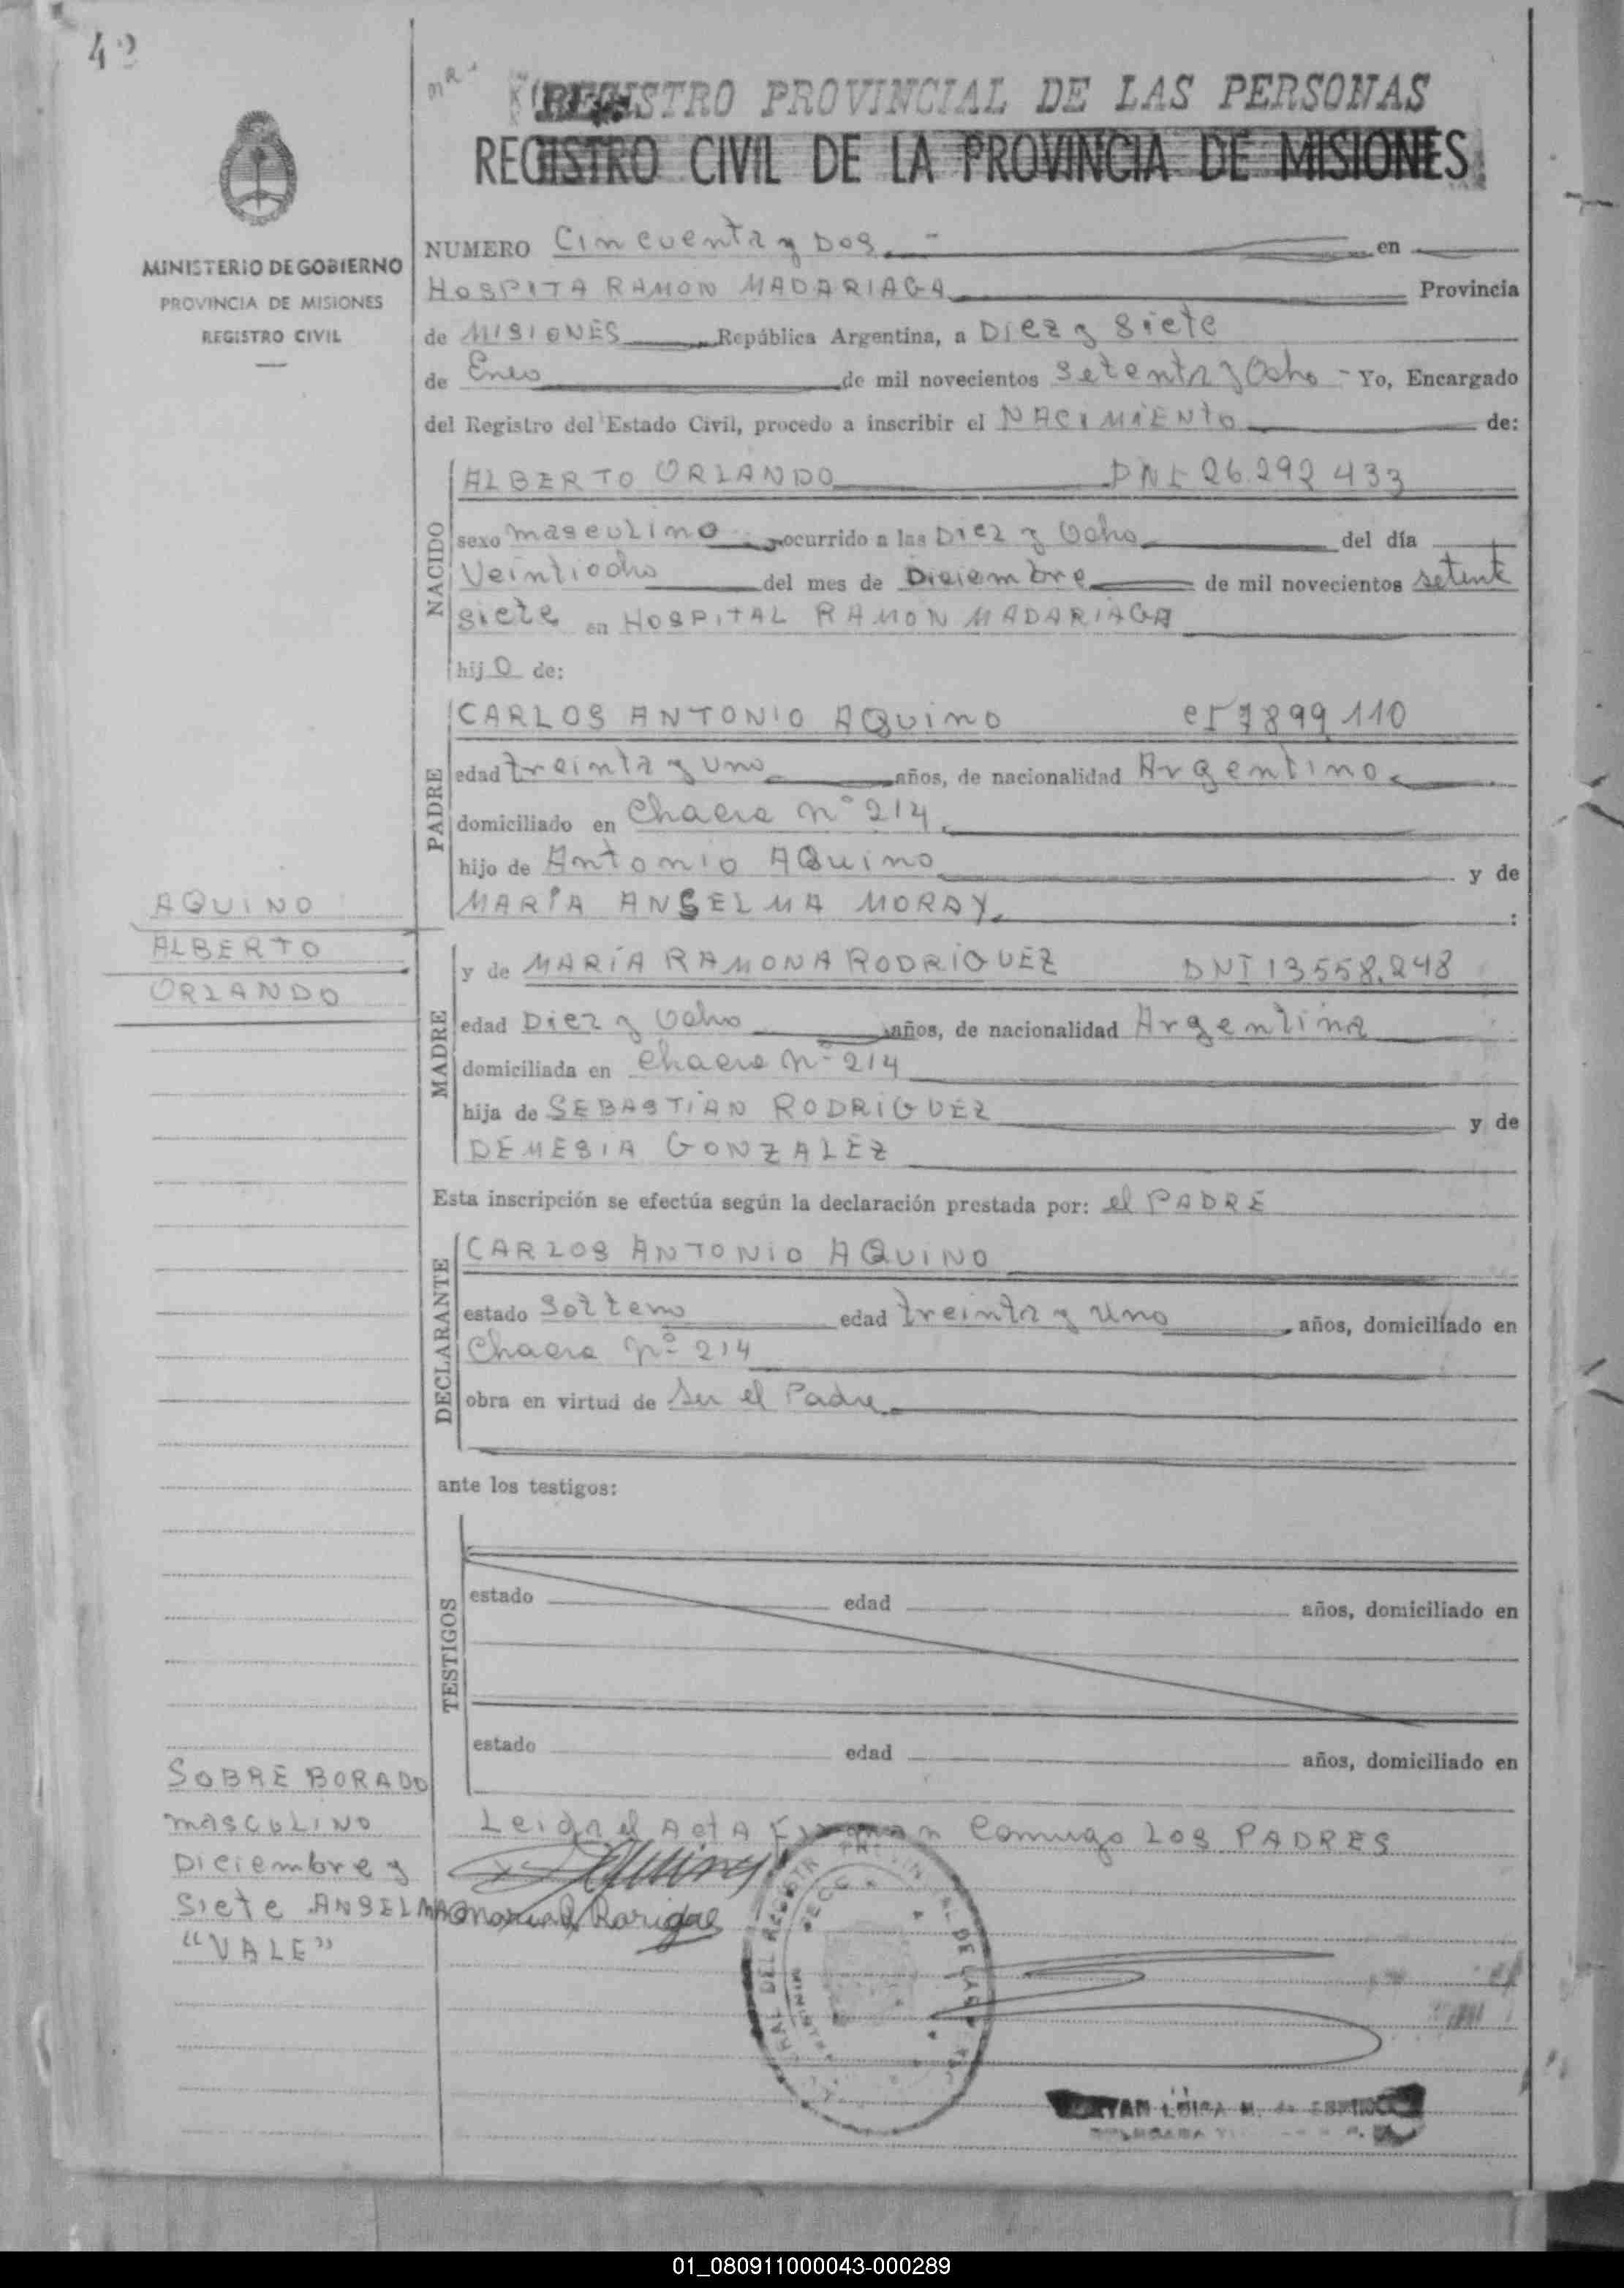 42
REGISTRO PROVINCIAL DE LAS PERSONAS
REGISTRO CIVIL DE LA PROVINCIA DE MISIONES
MINISTERIO DE GOBIERNO
PROVINCIA DE MISIONES
REGISTRO CIVIL
NUMERO Cincuenta y Dos.- en
HOSPITA RAMON MADARIAGA Provincia
de MISIONES República Argentina, a Diez y Siete
de Eneo de mil novecientos setenta y Ocho - Yo, Encargado
del Registro del Estado Civil, procedo a inscribir el NACIMIENTO de:
NACIDO
ALBERTO ORLANDO DNI 26.292.433
sexo masculino ocurrido a las Diez y Ocho del día
Veintiocho del mes de Diciembre de mil novecientos setent
siete en HOSPITAL RAMON MADARIAGA
hijo de:
PADRE
CARLOS ANTONIO AQUINO CI 7899.110
edad treinta y uno años, de nacionalidad Argentino
domiciliado en Chacra n° 214
hijo de Antonio AQuino y de
MARIA ANSELMA MORAY :
AQUINO
ALBERTO
ORLANDO
MADRE
y de MARÍA RAMONA RODRIGUEZ DNI 13.558.248
edad Diez y Ocho años, de nacionalidad Argentina
domiciliada en Chacra n° 214
hija de SEBASTIAN RODRIGUEZ y de
DEMESIA GONZALEZ
Esta inscripción se efectúa según la declaración prestada por: el PADRE
DECLARANTE
CARLOS ANTONIO AQUINO
estado soltero edad treinta y uno años, domiciliado en
Chacra n° 214
obra en virtud de ser el Padre
ante los testigos:
TESTIGOS
estado edad años, domiciliado en
estado edad años, domiciliado en
SOBRE BORADO
masculino
Diciembre y
Siete ANSELMA
"VALE"
Leida el Acta Firman Conmigo LOS PADRES
01_080911000043-000289